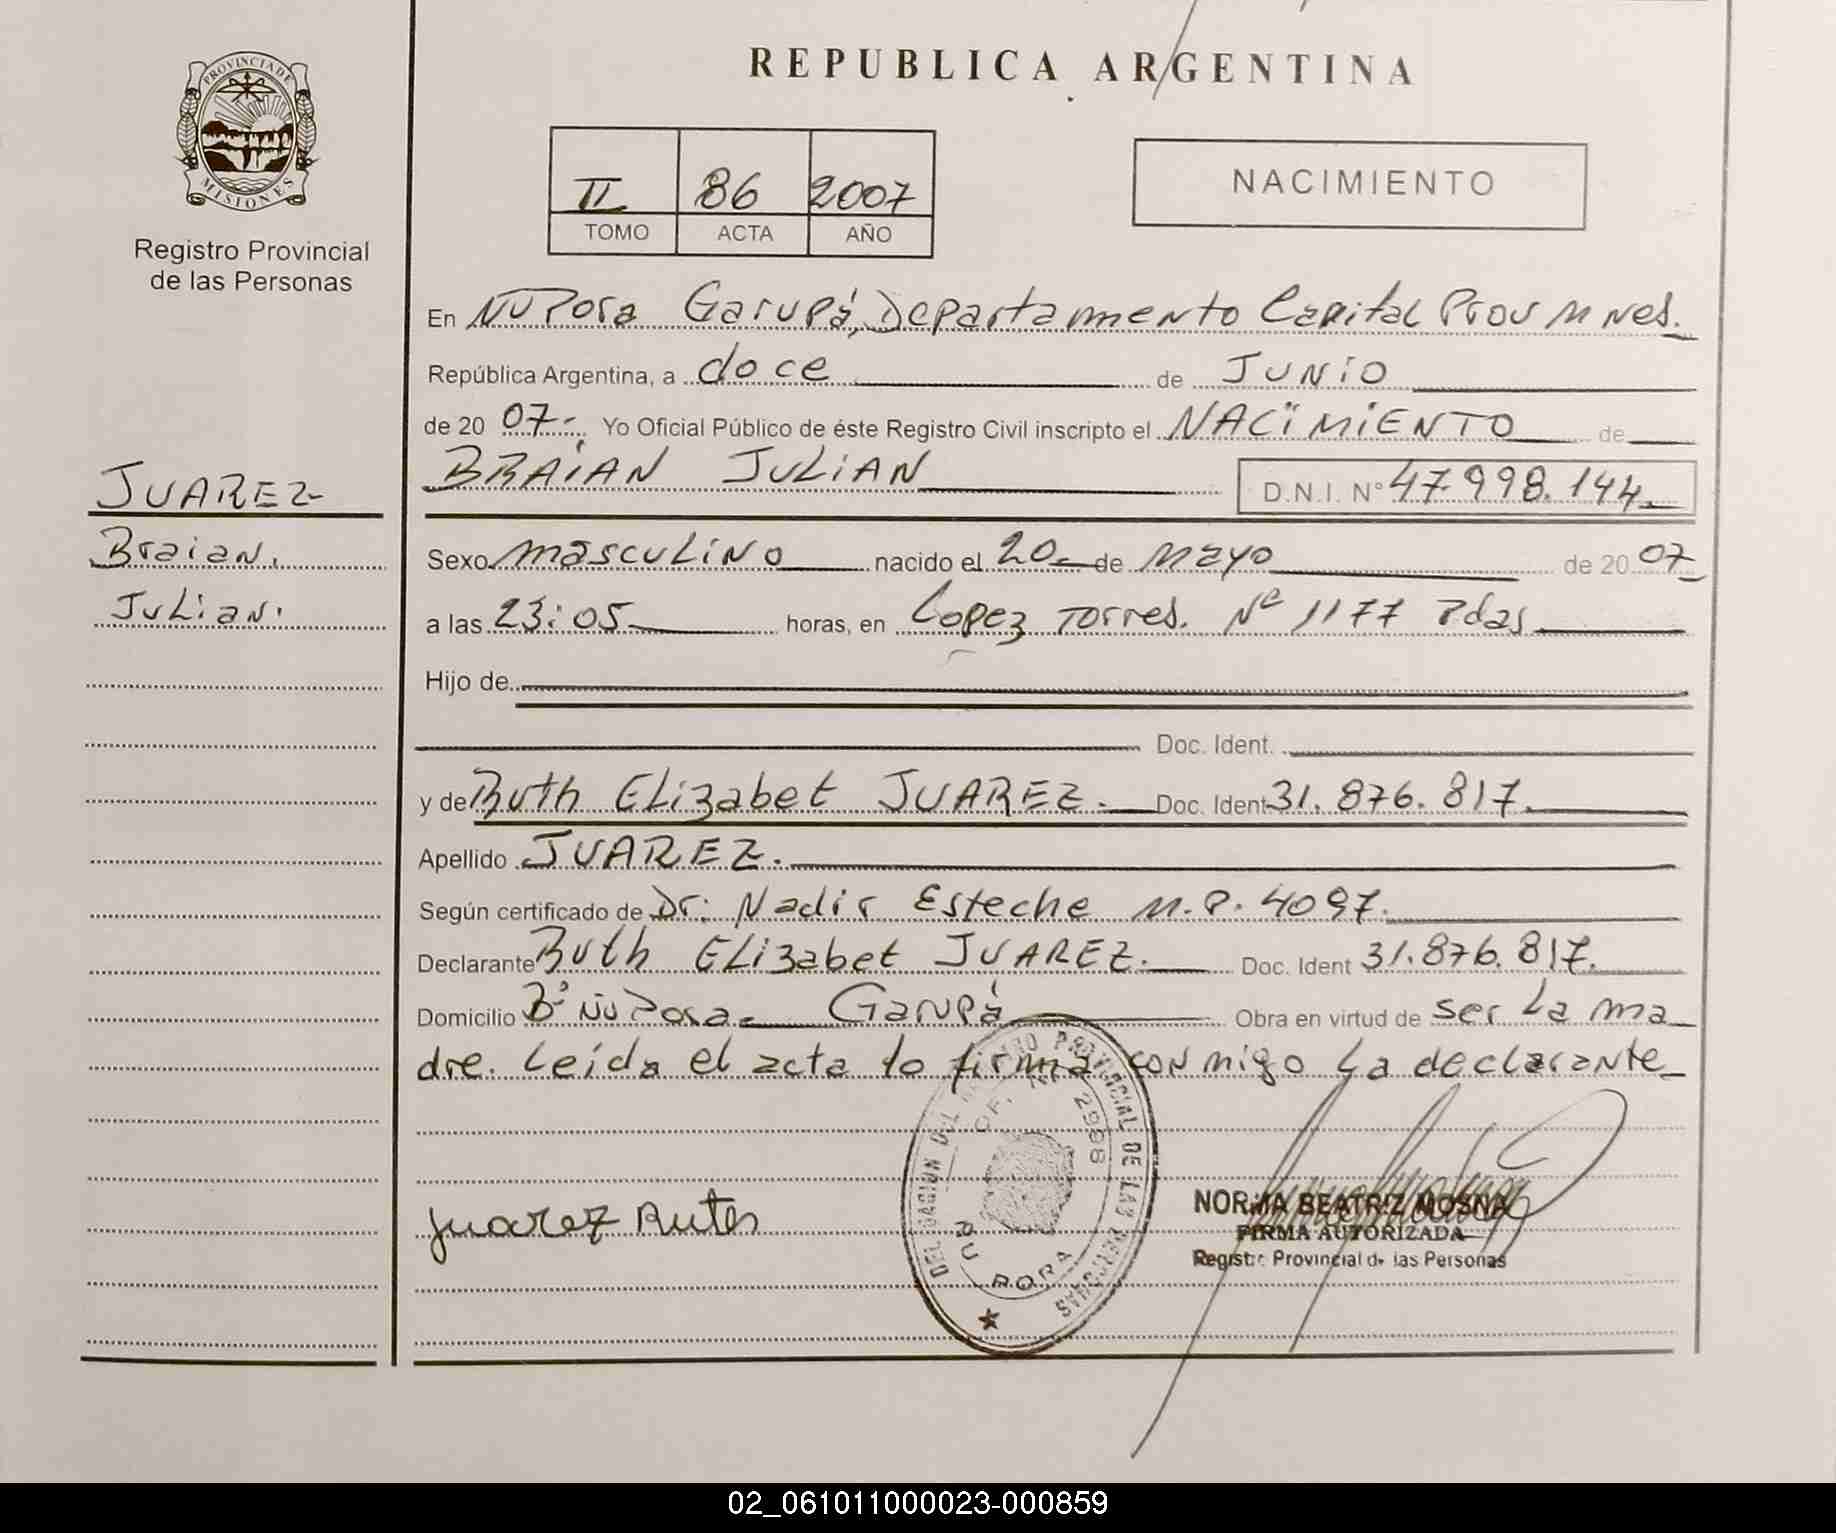 PROVINCIA DE
MISIONES
Registro Provincial
de las Personas
REPUBLICA ARGENTINA
II 86 2007
TOMO ACTA AÑO
NACIMIENTO
En Ñu Pora Garupá, Departamento Capital Prov Mnes.
República Argentina, a doce de JUNIO
de 20 07-. Yo Oficial Público de éste Registro Civil inscripto el NACIMIENTO de
BRAIAN JULIAN D.N.I. Nº 47.998.144.
JUAREZ
Braian.
Julian.
Sexo masculino nacido el 20 de mayo de 20 07
a las 23:05 horas, en Lopez Torres. Nº 1177 Pdas
Hijo de
Doc. Ident.
y de Ruth Elizabet JUAREZ. Doc. Ident 31.876.817.
Apellido JUAREZ.
Según certificado de Dr: Nadir Esteche M.P. 4097.
Declarante Ruth Elizabet JUAREZ. Doc. Ident 31.876.817.
Domicilio Bº Ñu Pora Garupá Obra en virtud de ser la ma
dre. Leida el acta lo firma conmigo la declarante
DELEGACION DEL REGISTRO PROVINCIAL DE LAS PERSONAS
OF. 2988
ÑU PORA
Juarez Ruth
NORMA BEATRIZ MOSNA
FIRMA AUTORIZADA
Registro Provincial de las Personas
02_061011000023-000859